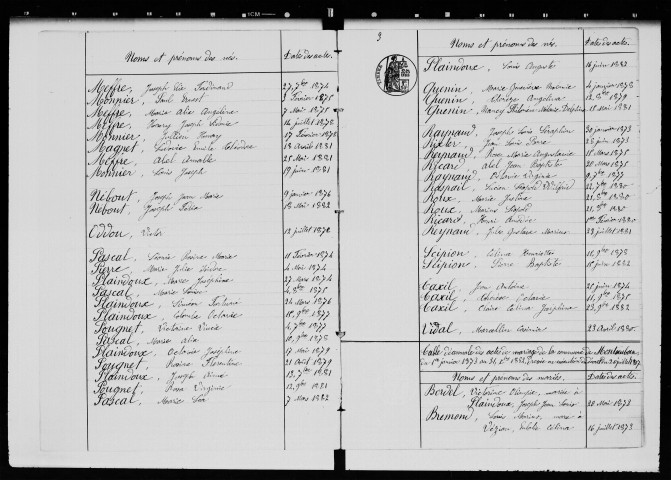 Noms et prénoms des nés. Dates des actes.
Meffre, Joseph Elie Ferdinand 27, 7bre 1874
Monnier, Paul Ernest Février 1875
Meffre, Marie Alix Angeline 7 Mai 1875
Meffre, Henry Joseph 16 juillet 1878
Monnier, Henry 17 Février 1878
Magnet, Emile Théodore 18 Avril 1881
Meffre, Abel Aimable 25 Mai 1881
Monnier, Louis Joseph 19 juin 1881
Nibout, Joseph Jean Marie 9 janvier 1876
Nibout, Joseph 18 Mai 1882
Oddon, Victor 12 juillet 1878
Pascal, Rosine Marie 11 Février 1874
Pierre, Marie Julie 4 Mai 1874
Plaindoux, Marie Joséphine 27 Mars 1874
Pascal, Marie Louise 4, 8bre 1875
Plaindoux, Siméon 24 Mars 1876
Plaindoux, Colombe Octavie 18, 9bre 1877
Pougnet, Victorine 4, 7bre 1877
Pascal, Marie Alix 10, 9bre 1878
Plaindoux, Octavie Joséphine 17 Mai 1879
Pougnet, Rosine Florentine 21 Avril 1879
Plaindoux, Joseph 13, 7bre 1881
Pougnet, Rose Virginie 12, 9bre 1881
Pascal, Marie 7 Mars 1882
3
Noms et prénoms des nés. Dates des actes.
Plaindoux, Louis Auguste 16 juin 1882
Quenin, Marie Geneviève 4 janvier 1878
Quenin, Angelina 12, 8bre 1879
Quenin, Nancy Philomène Delphine 18 Mai 1881
Raynaud, Joseph Louis Séraphin 30 janvier 1873
Jean Louis Pierre 28 juin 1873
Raynaud, Rose Marie 18 Mars 1875
Ricard, Abel Jean Baptiste 20 Mars 1875
Raynaud, Octavie Virginie 9, 7bre 1877
Raspail, 22, 7bre 1880
Roux, Marie Justine 21, 8bre 1880
Roux, Marius 21, 8bre 1880
Ricard, Henri 1er Février 1880
Reynaud, Jules Gustave Marius 23 juillet 1882
Scipion, Célina Henriette 11, 9bre 1878
Scipion, Pierre Baptiste 15 juin 1882
Taxil, Jean Antoine 25 juin 1874
Taxil, Thérèse Octavie 11, 9bre 1875
Taxil, Claire Célina Joséphine 23, 9bre 1882
Vidal, Marcellin Casimir 23 Avril 1880.
Table décennale des actes de mariage de la commune de Montauban
du 1er janvier 1873 au 31 Xbre 1882,
Noms et prénoms des mariés. Dates des actes.
Bordel, Victorine Olympe, mariée à
Plaindoux, Joseph Jean Louis 20 Mai 1873
Bremond, Louis Marius, marié à
Vézian, Célina 16 juillet 1873